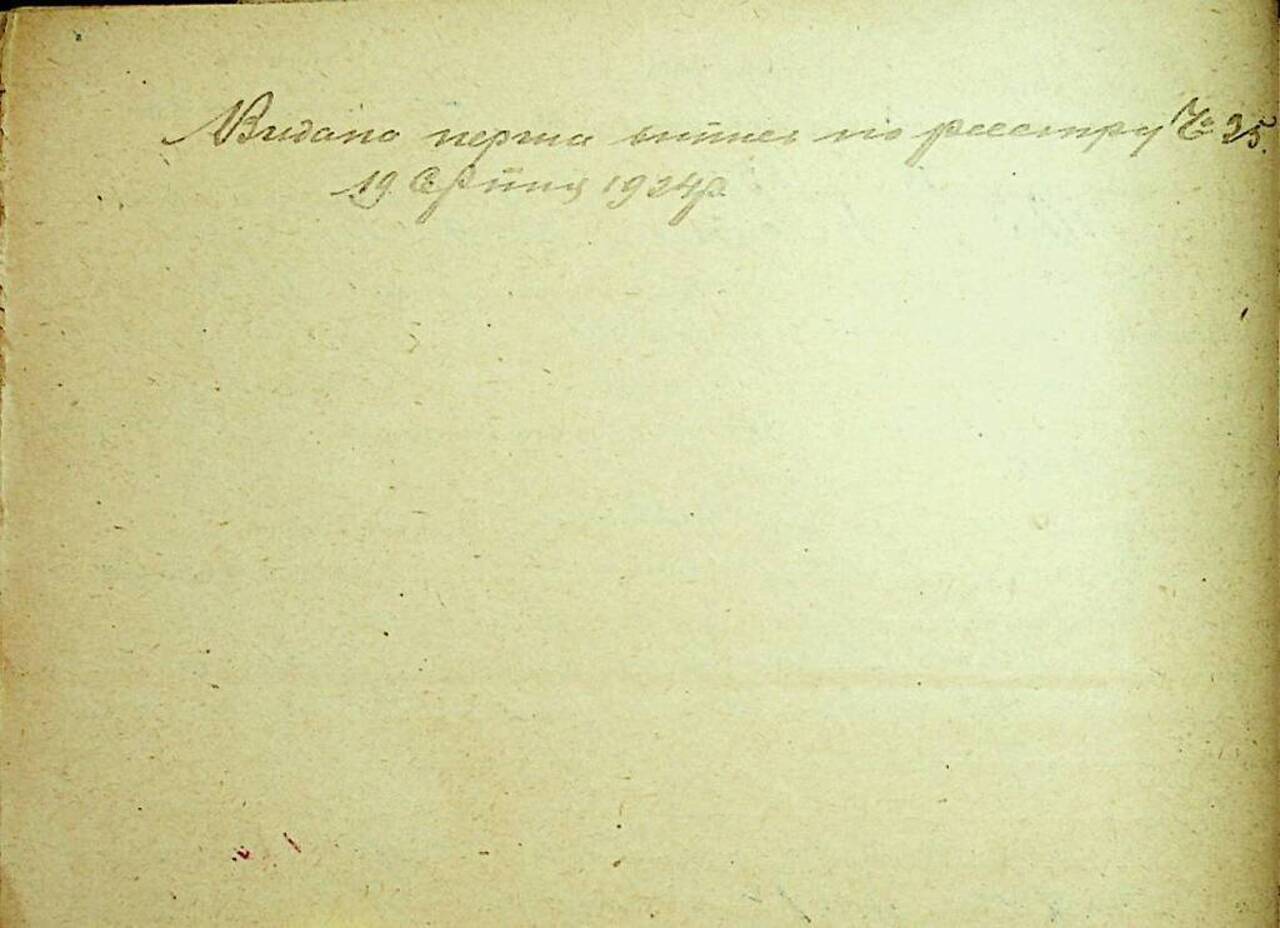 Видана перша випись по реестру № 35.
19 Серпня 1924 р